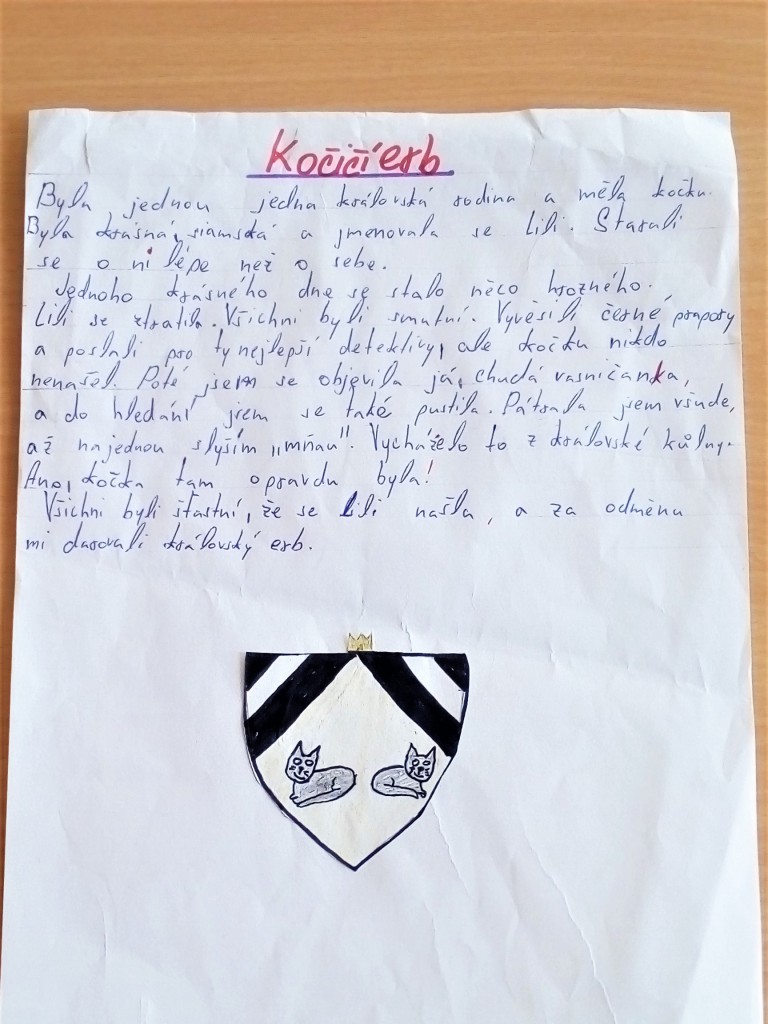 Kočičí erb
Byla jednou jedna královská rodina a měla kočku.
Byla krásná, siamská a jmenovala se Lili. Starali
se o ni lépe než o sebe.
Jednoho krásného dne se stalo něco hrozného.
Lili se ztratila. Všichni byli smutní. Vyvěsili černé prapory
a poslali pro ty nejlepší detektivy, ale kočku nikdo
nenašel. Poté jsem se objevila já, chudá vesničanka,
a do hledání jsem se také pustila. Pátrala jsem všude,
až najednou slyším „mňau". Vycházelo to z královské kůlny.
Ano, kočka tam opravdu byla!
Všichni byli šťastní, že se Lili našla, a za odměnu
mi darovali královský erb.